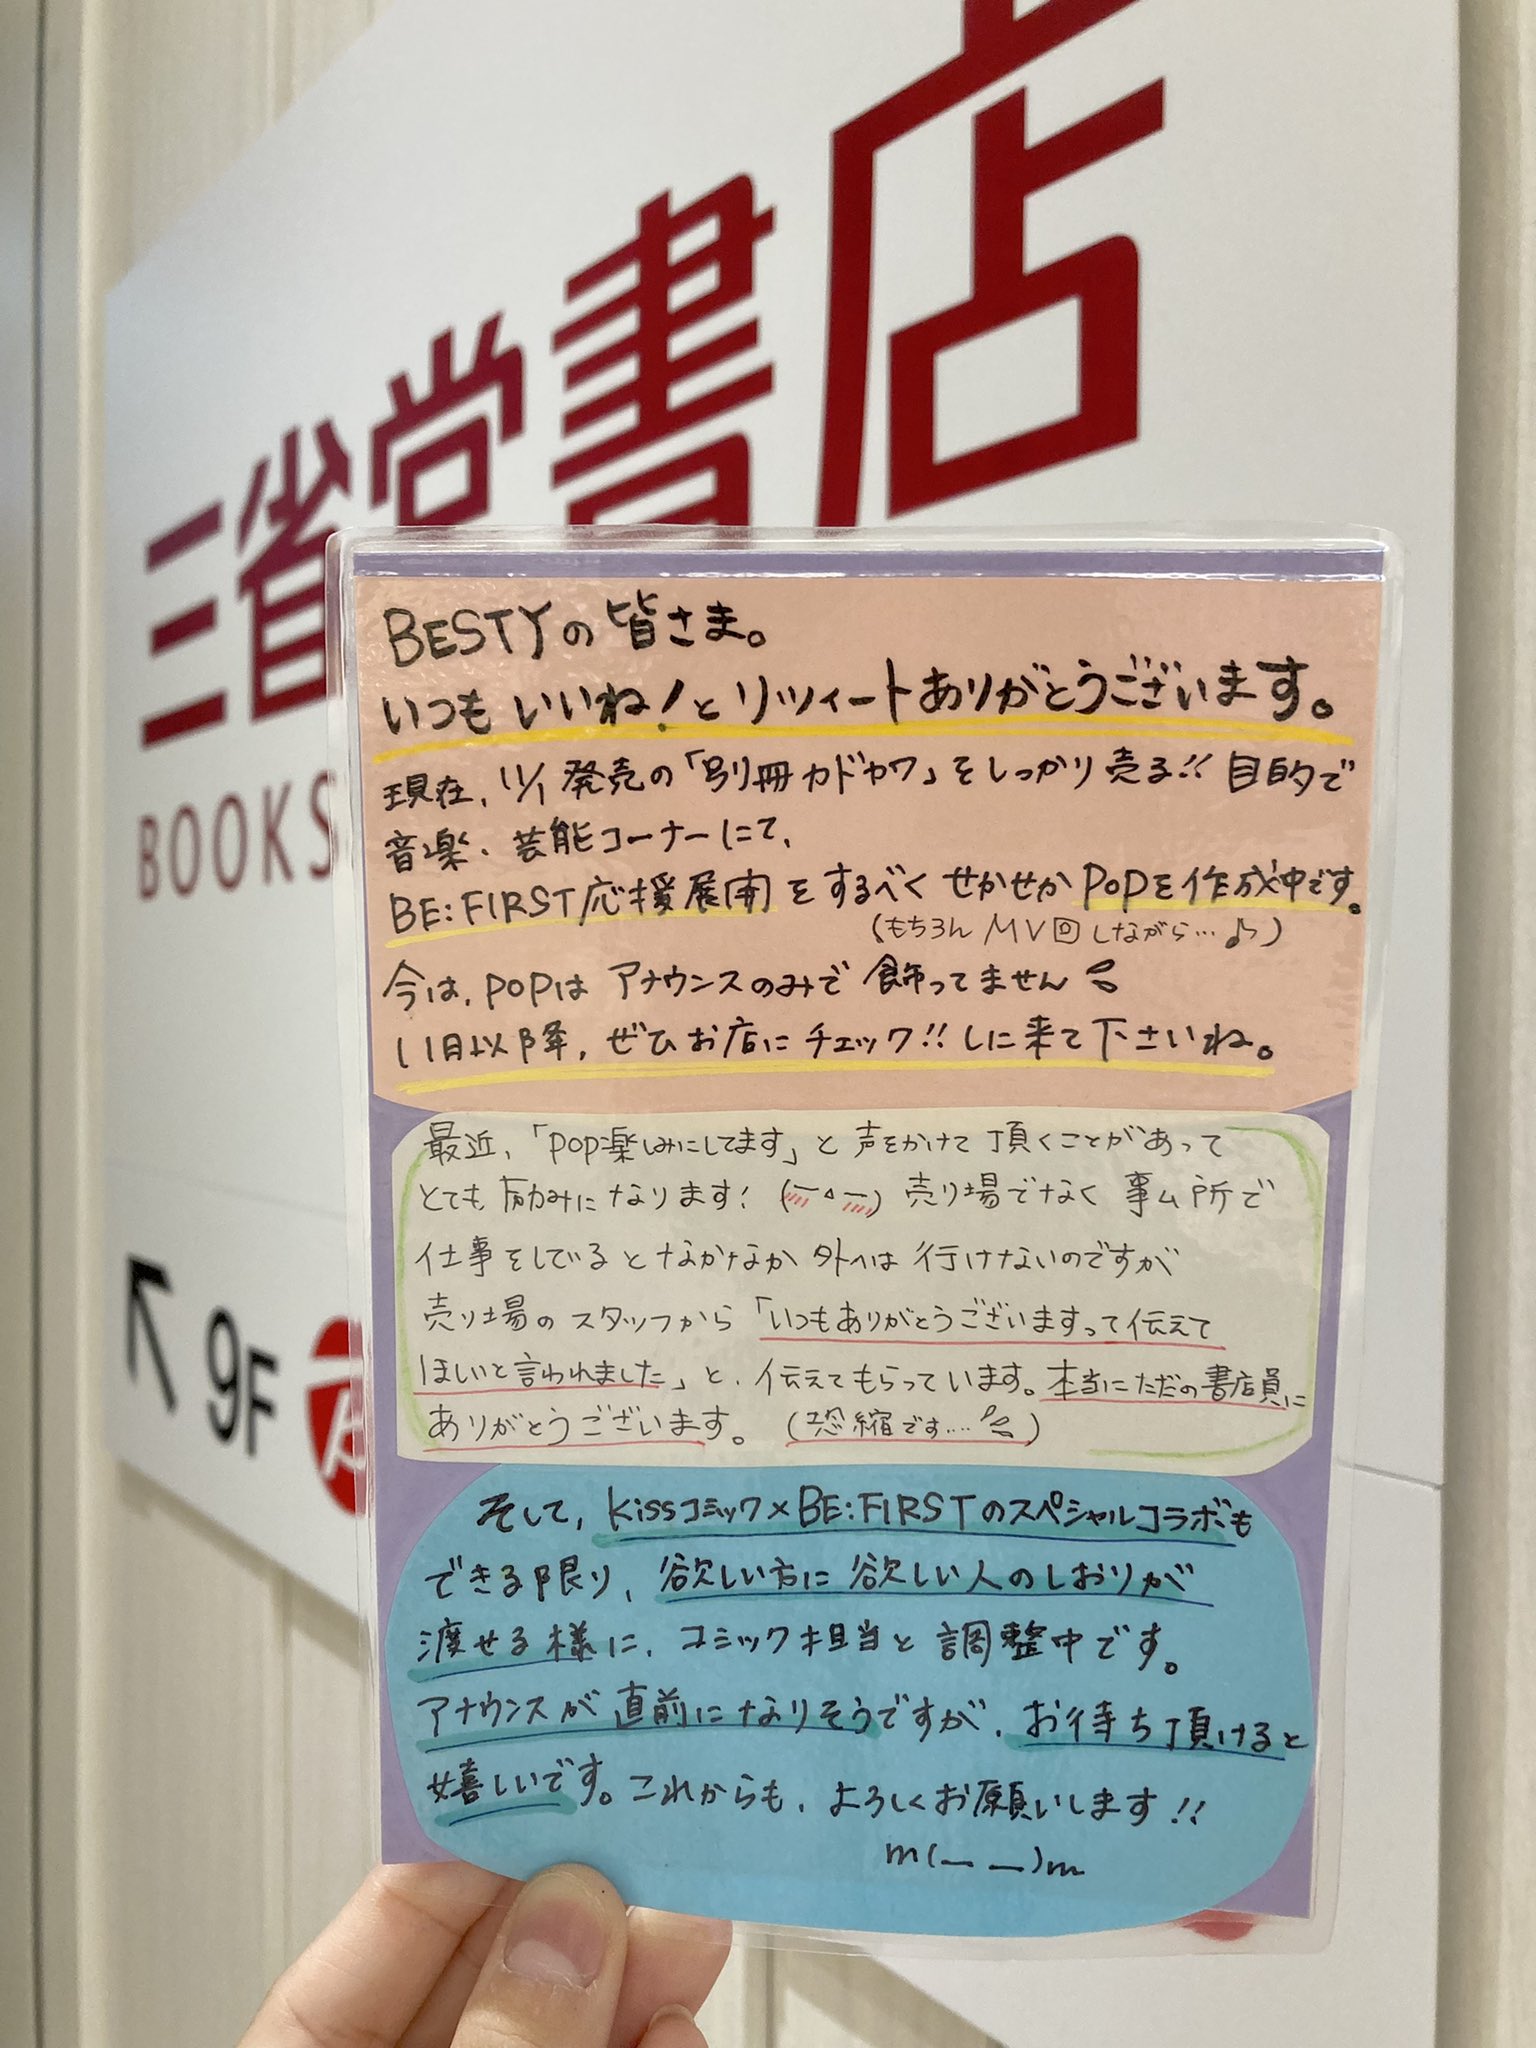 三省堂書店
BOOKS
9F
BESTYの皆さま。
いつもいいね!とリツィートありがとうございます。
現在、11/1発売の「別冊カドカワ」をしっかり売る!!目的で
音楽・芸能コーナーにて、
BE:FIRST応援展開をするべくせかせかPOPを作成中です。
(もちろんMV回しながら…♪)
今は、POPはアナウンスのみで飾ってません
11月以降、ぜひお店にチェック!!しに来て下さいね。
最近、「POP楽しみにしてます」と声をかけて頂くことがあって
とても励みになります!(ー△ー)売り場でなく事ム所で
仕事をしているとなかなか外へは行けないのですが
売り場のスタッフから「いつもありがとうございますって伝えて
ほしいと言われました」と、伝えてもらっています。本当にただの書店員に
ありがとうございます。(恐縮です…)
そして、Kissコミック×BE:FIRSTのスペシャルコラボも
できる限り、欲しい方に欲しい人のしおりが
渡せる様に、コミック担当と調整中です。
アナウンスが直前になりそうですが、お待ち頂けると
嬉しいです。これからも、よろしくお願いします!!
m(_ _)m